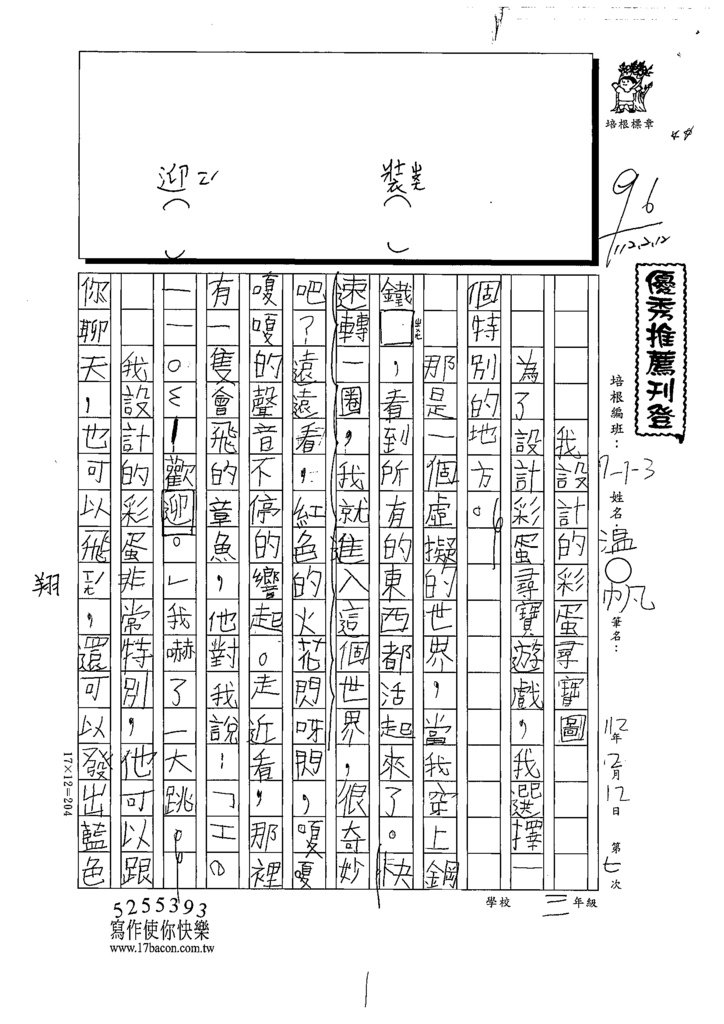 培根標章
44
96
112,2,12
優秀推薦刊登
培根編班：7-1-3
姓名：溫○帆
筆名：
112年2月12日
第七次
學校 三年級
裝ㄓㄨㄤ（ ）
迎ㄧㄥˊ（ ）
我設計的彩蛋尋寶圖
為了設計彩蛋尋寶遊戲，我選擇一
個特別的地方。
那是一個虛擬的世界，當我穿上鋼
鐵ㄓㄨㄤ，看到所有的東西都活起來了。快
速轉一圈，我就進入這個世界，很奇妙
吧？遠遠看，紅色的火花閃呀閃，嗄嗄
嗄嗄的聲音不停的響起。走近看，那裡
有一隻會飛的章魚，他對我說：「工0
一一0ㄟ！歡迎。」我嚇了一大跳。
我設計的彩蛋非常特別，他可以跟
你聊天，也可以飛ㄒㄧㄤˊ，還可以發出藍色
翔
17×12=204
5255393
寫作使你快樂
www.17bacon.com.tw
1